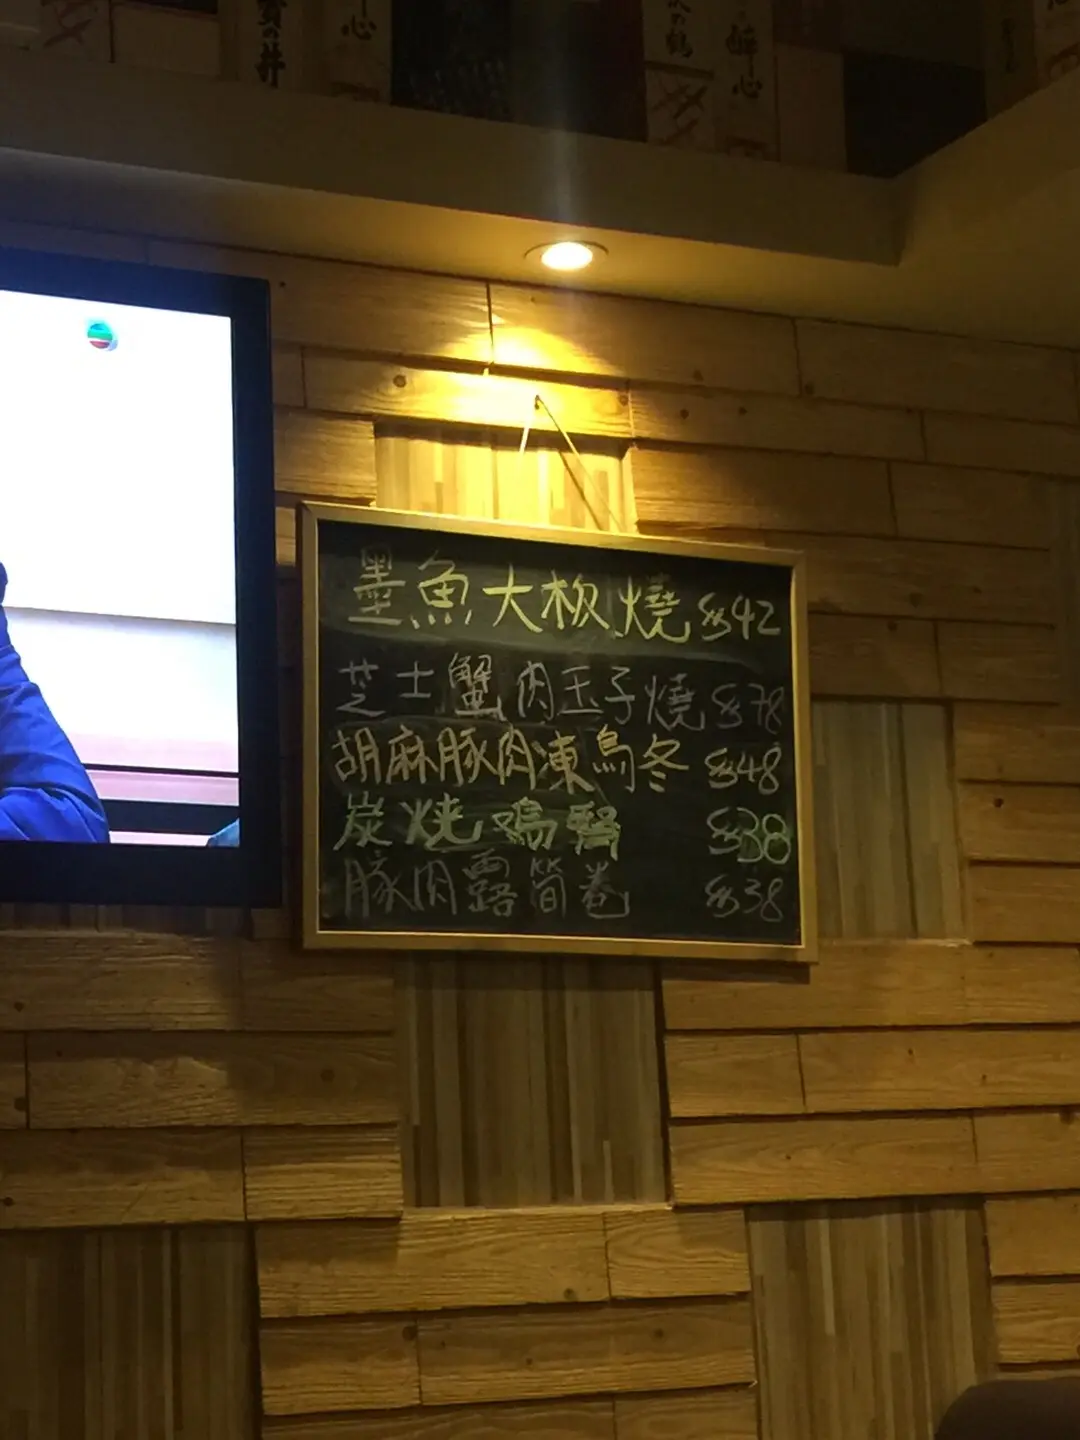 心
の鶴
酔心
墨魚大板燒 $42
芝士蟹肉玉子燒 $78
胡麻豚肉凍烏冬 $48
炭烧鸡腎 $38
豚肉露筍卷 $38